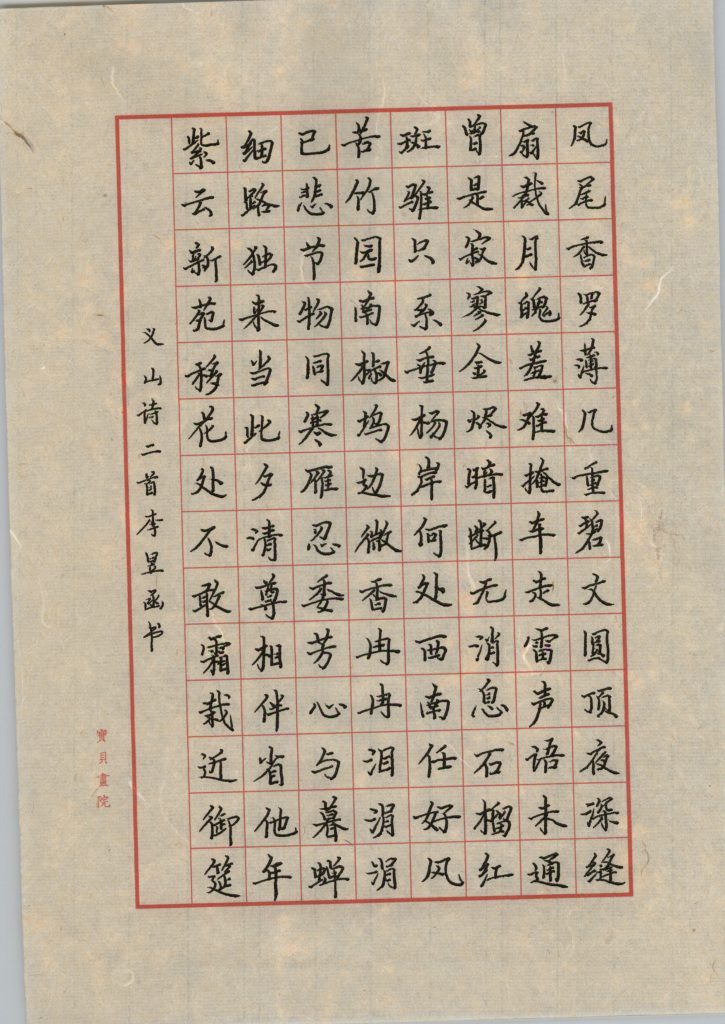 凤尾香罗薄几重碧文圆顶夜深缝
扇裁月魄羞难掩车走雷声语未通
曾是寂寥金烬暗断无消息石榴红
斑骓只系垂杨岸何处西南任好风
苦竹园南椒坞边微香冉冉泪涓涓
已悲节物同寒雁忍委芳心与暮蝉
细路独来当此夕清尊相伴省他年
紫云新苑移花处不敢霜栽近御筵
义山诗二首李昱函书
寶貝畫院